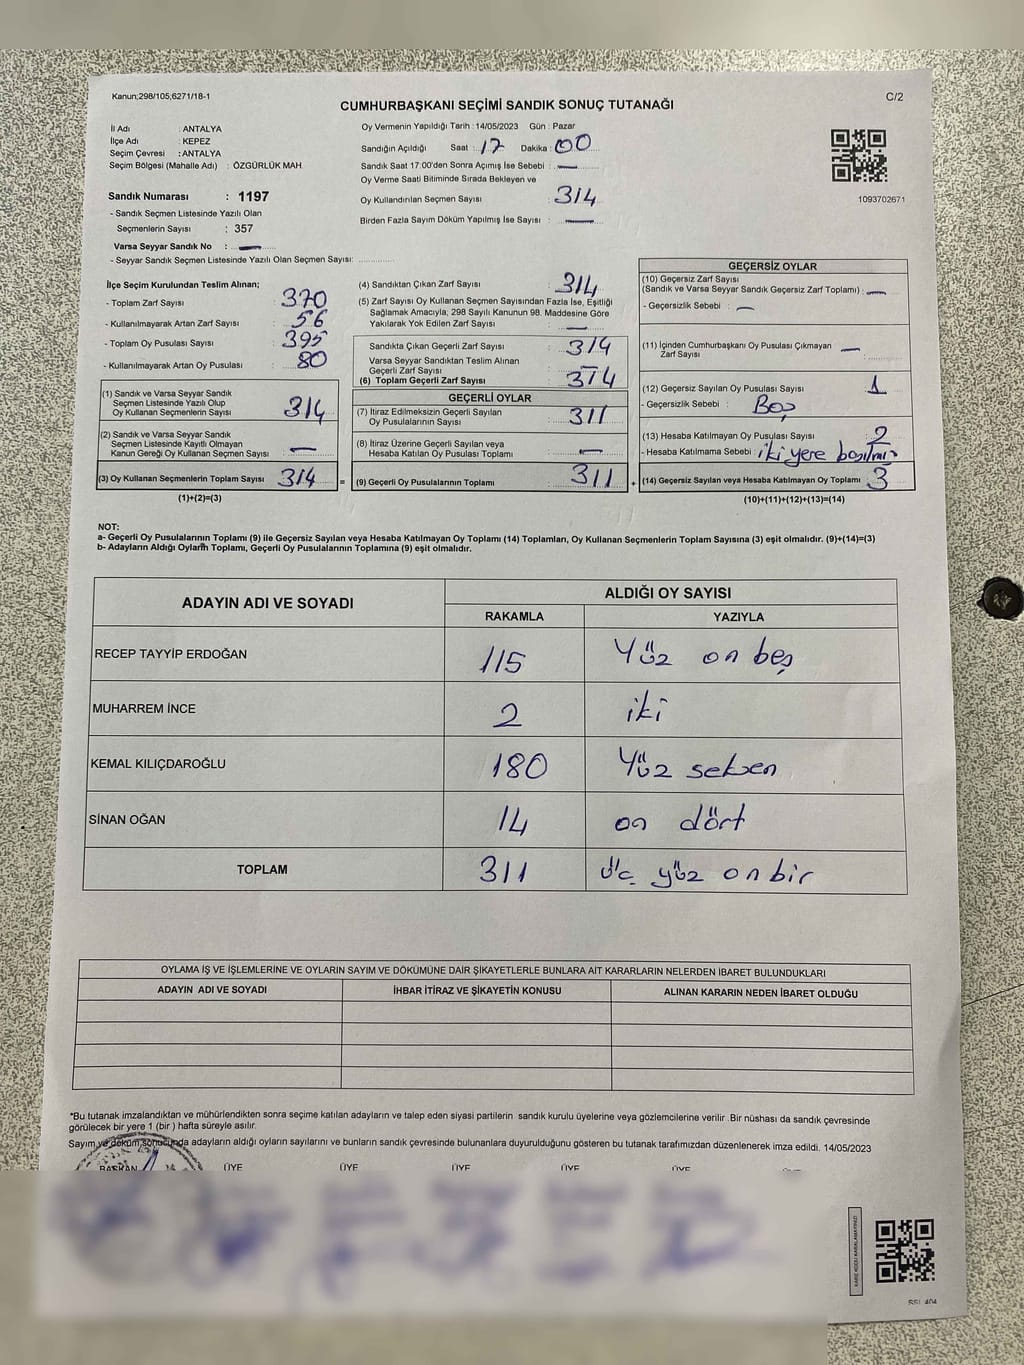 Kanun;298/105;6271/18-1
C/2
CUMHURBAŞKANI SEÇİMİ SANDIK SONUÇ TUTANAĞI
İl Adı : ANTALYA
İlçe Adı : KEPEZ
Seçim Çevresi : ANTALYA
Seçim Bölgesi (Mahalle Adı) : ÖZGÜRLÜK MAH.
Sandık Numarası : 1197
- Sandık Seçmen Listesinde Yazılı Olan
Seçmenlerin Sayısı : 357
Varsa Seyyar Sandık No : —
- Seyyar Sandık Seçmen Listesinde Yazılı Olan Seçmen Sayısı:
Oy Vermenin Yapıldığı Tarih : 14/05/2023 Gün : Pazar
Sandığın Açıldığı Saat : 17 Dakika : 00
Sandık Saat 17:00'den Sonra Açımış İse Sebebi : —
Oy Verme Saati Bitiminde Sırada Bekleyen ve
Oy Kullandırılan Seçmen Sayısı : 314
Birden Fazla Sayım Döküm Yapılmış İse Sayısı : —
1093702671
İlçe Seçim Kurulundan Teslim Alınan;
- Toplam Zarf Sayısı : 370
- Kullanılmayarak Artan Zarf Sayısı : 56
- Toplam Oy Pusulası Sayısı : 395
- Kullanılmayarak Artan Oy Pusulası : 80
(1) Sandık ve Varsa Seyyar Sandık
Seçmen Listesinde Yazılı Olup
Oy Kullanan Seçmenlerin Sayısı : 314
(2) Sandık ve Varsa Seyyar Sandık
Seçmen Listesinde Kayıtlı Olmayan
Kanun Gereği Oy Kullanan Seçmen Sayısı : —
(3) Oy Kullanan Seçmenlerin Toplam Sayısı : 314
(1)+(2)=(3)
(4) Sandıktan Çıkan Zarf Sayısı : 314
(5) Zarf Sayısı Oy Kullanan Seçmen Sayısından Fazla İse, Eşitliği
Sağlamak Amacıyla; 298 Sayılı Kanunun 98. Maddesine Göre
Yakılarak Yok Edilen Zarf Sayısı : —
Sandıkta Çıkan Geçerli Zarf Sayısı : 314
Varsa Seyyar Sandıktan Teslim Alınan
Geçerli Zarf Sayısı :
(6) Toplam Geçerli Zarf Sayısı : 314
GEÇERLİ OYLAR
(7) İtiraz Edilmeksizin Geçerli Sayılan
Oy Pusulalarının Sayısı : 311
(8) İtiraz Üzerine Geçerli Sayılan veya
Hesaba Katılan Oy Pusulası Toplamı : —
= (9) Geçerli Oy Pusulalarının Toplamı : 311
GEÇERSİZ OYLAR
(10) Geçersiz Zarf Sayısı
(Sandık ve Varsa Seyyar Sandık Geçersiz Zarf Toplamı) : —
- Geçersizlik Sebebi : —
(11) İçinden Cumhurbaşkanı Oy Pusulası Çıkmayan
Zarf Sayısı : —
(12) Geçersiz Sayılan Oy Pusulası Sayısı : 1
- Geçersizlik Sebebi : Boş
(13) Hesaba Katılmayan Oy Pusulası Sayısı : 2
- Hesaba Katılmama Sebebi : iki yere basılmış
+ (14) Geçersiz Sayılan veya Hesaba Katılmayan Oy Toplamı : 3
(10)+(11)+(12)+(13)=(14)
NOT:
a- Geçerli Oy Pusulalarının Toplamı (9) ile Geçersiz Sayılan veya Hesaba Katılmayan Oy Toplamı (14) Toplamları, Oy Kullanan Seçmenlerin Toplam Sayısına (3) eşit olmalıdır. (9)+(14)=(3)
b- Adayların Aldığı Oyların Toplamı, Geçerli Oy Pusulalarının Toplamına (9) eşit olmalıdır.
ADAYIN ADI VE SOYADI
ALDIĞI OY SAYISI
RAKAMLA YAZIYLA
RECEP TAYYİP ERDOĞAN 115 Yüz on beş
MUHARREM İNCE 2 iki
KEMAL KILIÇDAROĞLU 180 Yüz seksen
SİNAN OĞAN 14 on dört
TOPLAM 311 üç yüz on bir
OYLAMA İŞ VE İŞLEMLERİNE VE OYLARIN SAYIM VE DÖKÜMÜNE DAİR ŞİKAYETLERLE BUNLARA AİT KARARLARIN NELERDEN İBARET BULUNDUKLARI
ADAYIN ADI VE SOYADI İHBAR İTİRAZ VE ŞİKAYETİN KONUSU ALINAN KARARIN NEDEN İBARET OLDUĞU
*Bu tutanak imzalandıktan ve mühürlendikten sonra seçime katılan adayların ve talep eden siyasi partilerin sandık kurulu üyelerine veya gözlemcilerine verilir. Bir nüshası da sandık çevresinde
görülecek bir yere 1 (bir ) hafta süreyle asılır.
Sayım ve döküm sonucunda adayların aldığı oyların sayılarını ve bunların sandık çevresinde bulunanlara duyurulduğunu gösteren bu tutanak tarafımızdan düzenlenerek imza edildi. 14/05/2023
BAŞKAN ÜYE ÜYE ÜYE ÜYE ÜYE